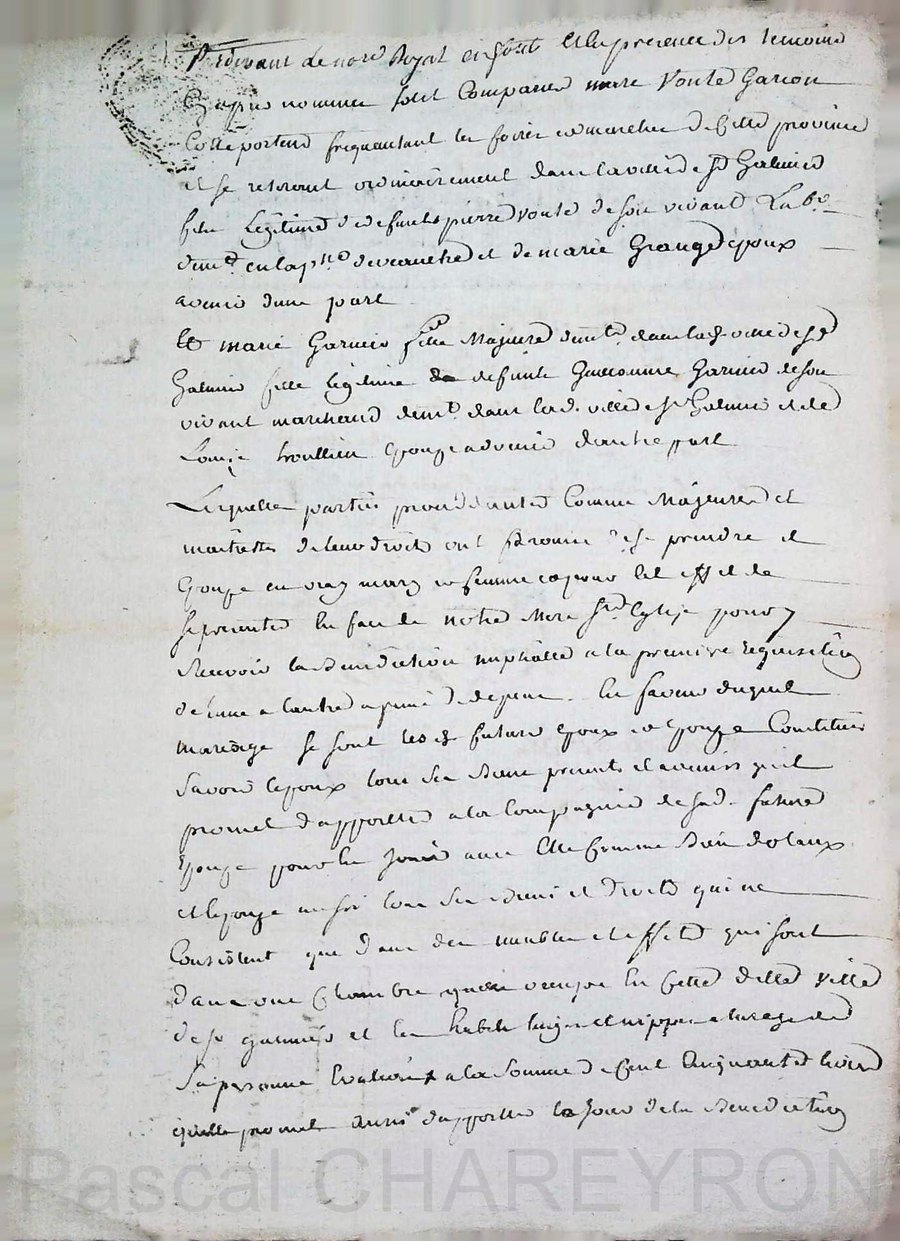 Pardevant le nore Royal en soubt Et En presence des temoins
Cy apres nommes sont Comparus marc Voute Garcon
Colleporteur frequantant les foires et marches de Cette province
et se retirant ordinairement dans la ville de St Galmier
fils Legitime de defunts pierre voute de son vivant Lab.
demt. en la psse de veauche et de marie Grange Epoux
avenir dune part
Et marie Garnier fille Majeure demt. dans lad. ville de St
Galmier fille legitime de defunts Guillaume Garnier de son
vivant marchand demt. dans lad. ville de St Galmier et de
Louize troullieu Epouze advenir dautre part
Lesquelles parties procedantes Comme Majeures et
maitresses de leur droits ont promis de se prendre et
Epouze en vray mary et femme et pour Cet effet de
se presenter En face de notre Mere Ste Eglize pour y
Recevoir la Benediction nuptialle a la premiere requisition
de lune a lautre a peine de depens. En faveur duquel
mariage se sont lesd. futurs Epoux et Epouze Constitués
savoir lepoux tous ses Biens presents et avenirs quil
promet dapporter a la Compagnie de sad. future
Epouze pour En jouir avec Elle Comme Bien dotaux
et lepouze aussi tous ses Biens et Droits qui ne
Consistent que dans des meubles et effets qui sont
dans une Chambre quelle occupe En Cette ditte ville
de St galmier et En habits linges et nippes a lusage de
sa personne Evalués a la Somme de Cent Cinquante livres
quelle promet aussi dapporter le Jour de la Benediction
Pascal CHAREYRON